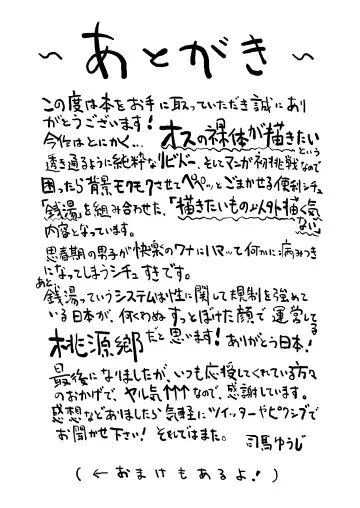 ~ あとがき ~
この度は本をお手に取っていただき誠にあり
がとうございます！
今作はとにかく… オスの裸体が描きたいという
透き通るように純粋なリビドー、そしてマンガ初挑戦なので
困ったら背景モクモクさせてペペッとごまかせる便利シチュ
「銭湯」を組み合わせた、「描きたいもの以外描く気ない」
内容となっています。
思春期の男子が快楽のワナにハマッて何かに病みつき
になってしまうシチュすきです。
あと銭湯っていうシステムは性に関して規制を強めて
いる日本が、何くわぬすっとぼけた顔で運営してる
桃源郷だと思います！ありがとう日本！
最後になりましたが、いつも応援してくれている方々
のおかげで、ヤル気↑↑↑なので、感謝しています。
感想などありましたら気軽にツイッターやピクシブで
お聞かせ下さい！それではまた。 司馬ゆうじ
(←おまけもあるよ！)